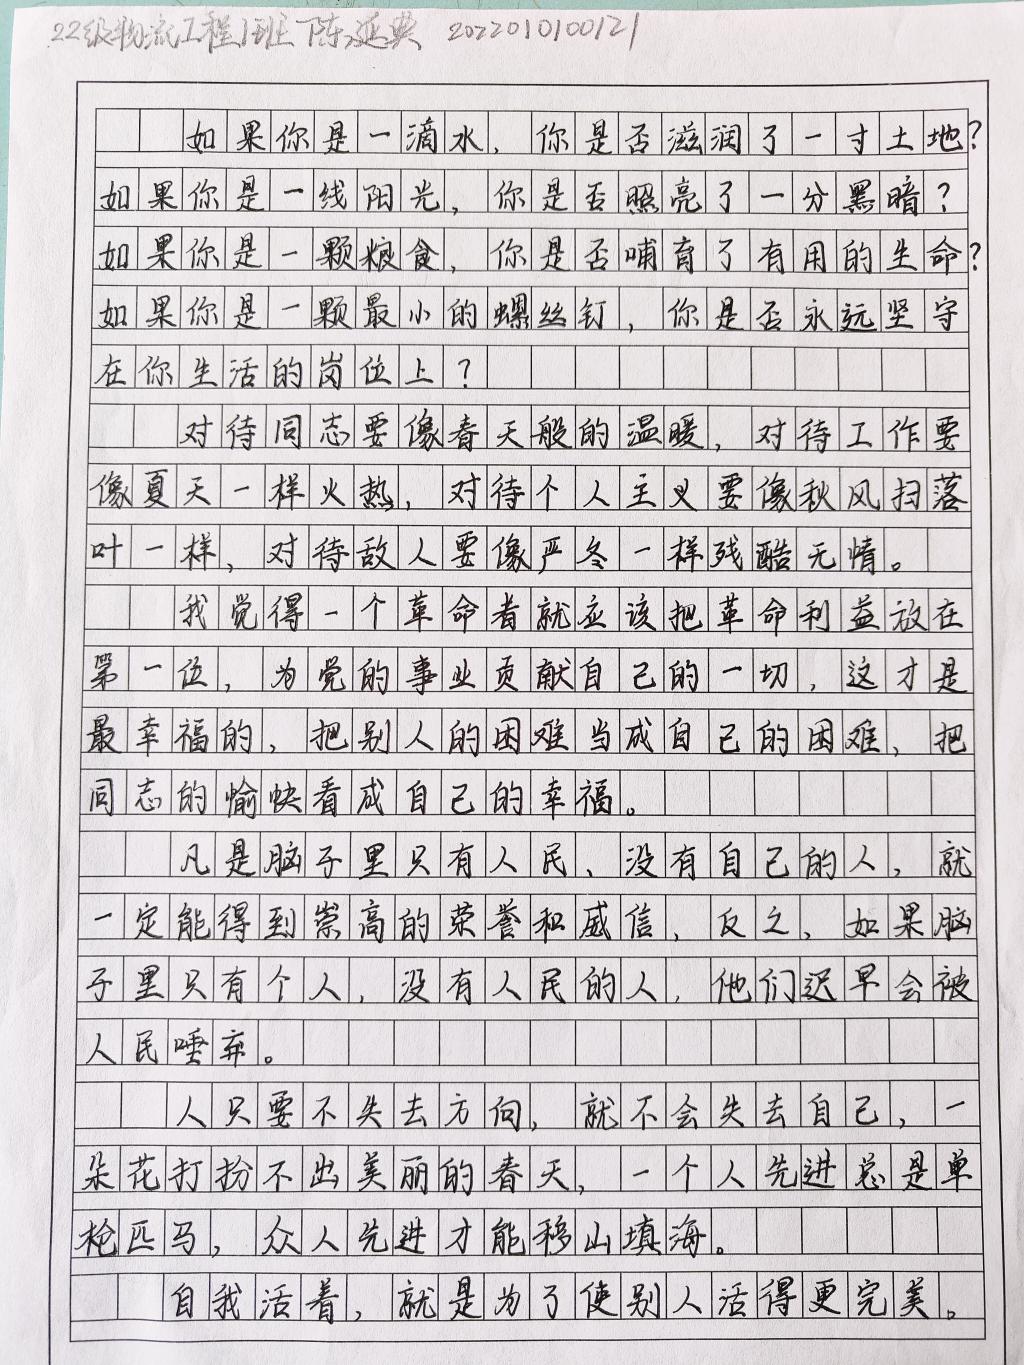 22级物流工程1班 陈廷典 2022010100121
如果你是一滴水，你是否滋润了一寸土地？
如果你是一线阳光，你是否照亮了一分黑暗？
如果你是一颗粮食，你是否哺育了有用的生命？
如果你是一颗最小的螺丝钉，你是否永远坚守
在你生活的岗位上？
对待同志要像春天般的温暖，对待工作要
像夏天一样火热，对待个人主义要像秋风扫落
叶一样，对待敌人要像严冬一样残酷无情。
我觉得一个革命者就应该把革命利益放在
第一位，为党的事业贡献自己的一切，这才是
最幸福的，把别人的困难当成自己的困难，把
同志的愉快看成自己的幸福。
凡是脑子里只有人民、没有自己的人，就
一定能得到崇高的荣誉和威信，反之，如果脑
子里只有个人，没有人民的人，他们迟早会被
人民唾弃。
人只要不失去方向，就不会失去自己，一
朵花打扮不出美丽的春天，一个人先进总是单
枪匹马，众人先进才能移山填海。
自我活着，就是为了使别人活得更完美。